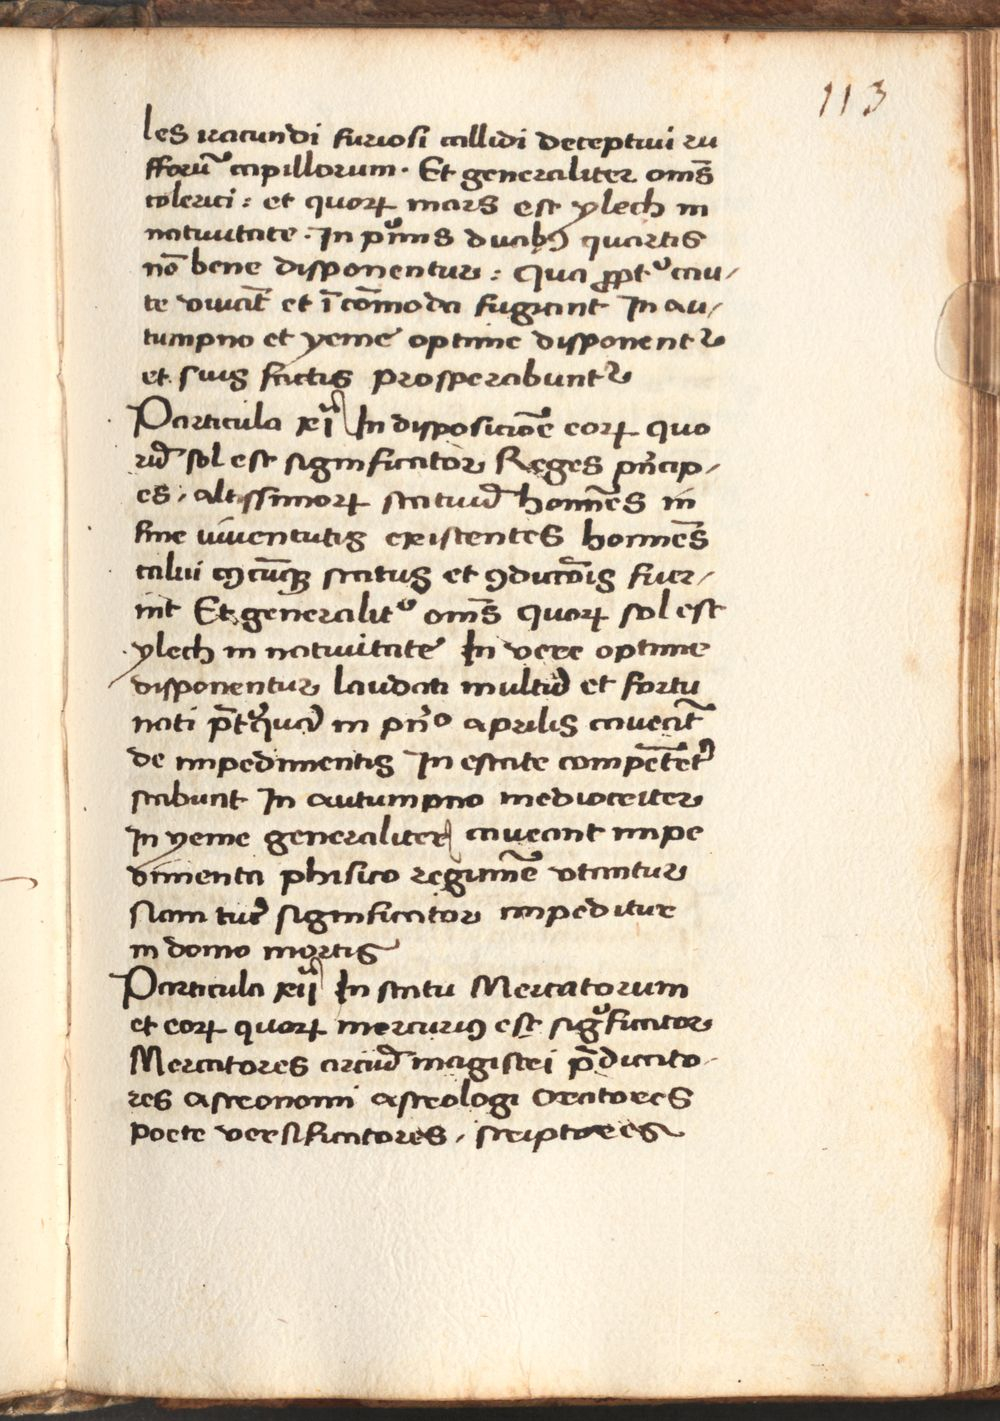 113
les iracundi furiosi callidi deceptiui ru
fforū capillorum · Et generaliter om̄s
colerici : et quorꝝ mars est ylech in
natiuitate · In p̓mis duabꝰ quartis
nō bene disponentur : Qua ꝓpt᷒ cau/
te viuāt et īcōmoda fugiant In au/
tumpno et yeme optime disponentr᷑
et suis factis prosperabuntr᷑
Particula xiᵃ In disposiciōe eorꝝ quo
rū sol est significator Reges pn̄cip/
es, altissimorꝝ statuū homīes in
fine iuuentutis existentes homīes
calui cꝰcūqꝫ status et ꝯdicōis fuer/
int Et generalit᷒ om̄s quorꝝ sol est
ylech in natiuitate In vere optime
disponentur laudati multū et fortu
nati in pn̄ᵒ aprilis caueāt
de impedimentis In estate compētēt᷒
stabunt In autumpno mediocriter
In yeme generaliter caueant impe
dimenta phisico regimīe vtantur
Nam significator impeditur
in domo mortis
Particula xiiᵃ In statu Mercatorum
et eorꝝ quorꝝ mercuriꝰ est sig᷒ficator
Mercatores arciū magistri p̄dicato-
res astronomi astrologi Oratores
poete versificatores, scriptores